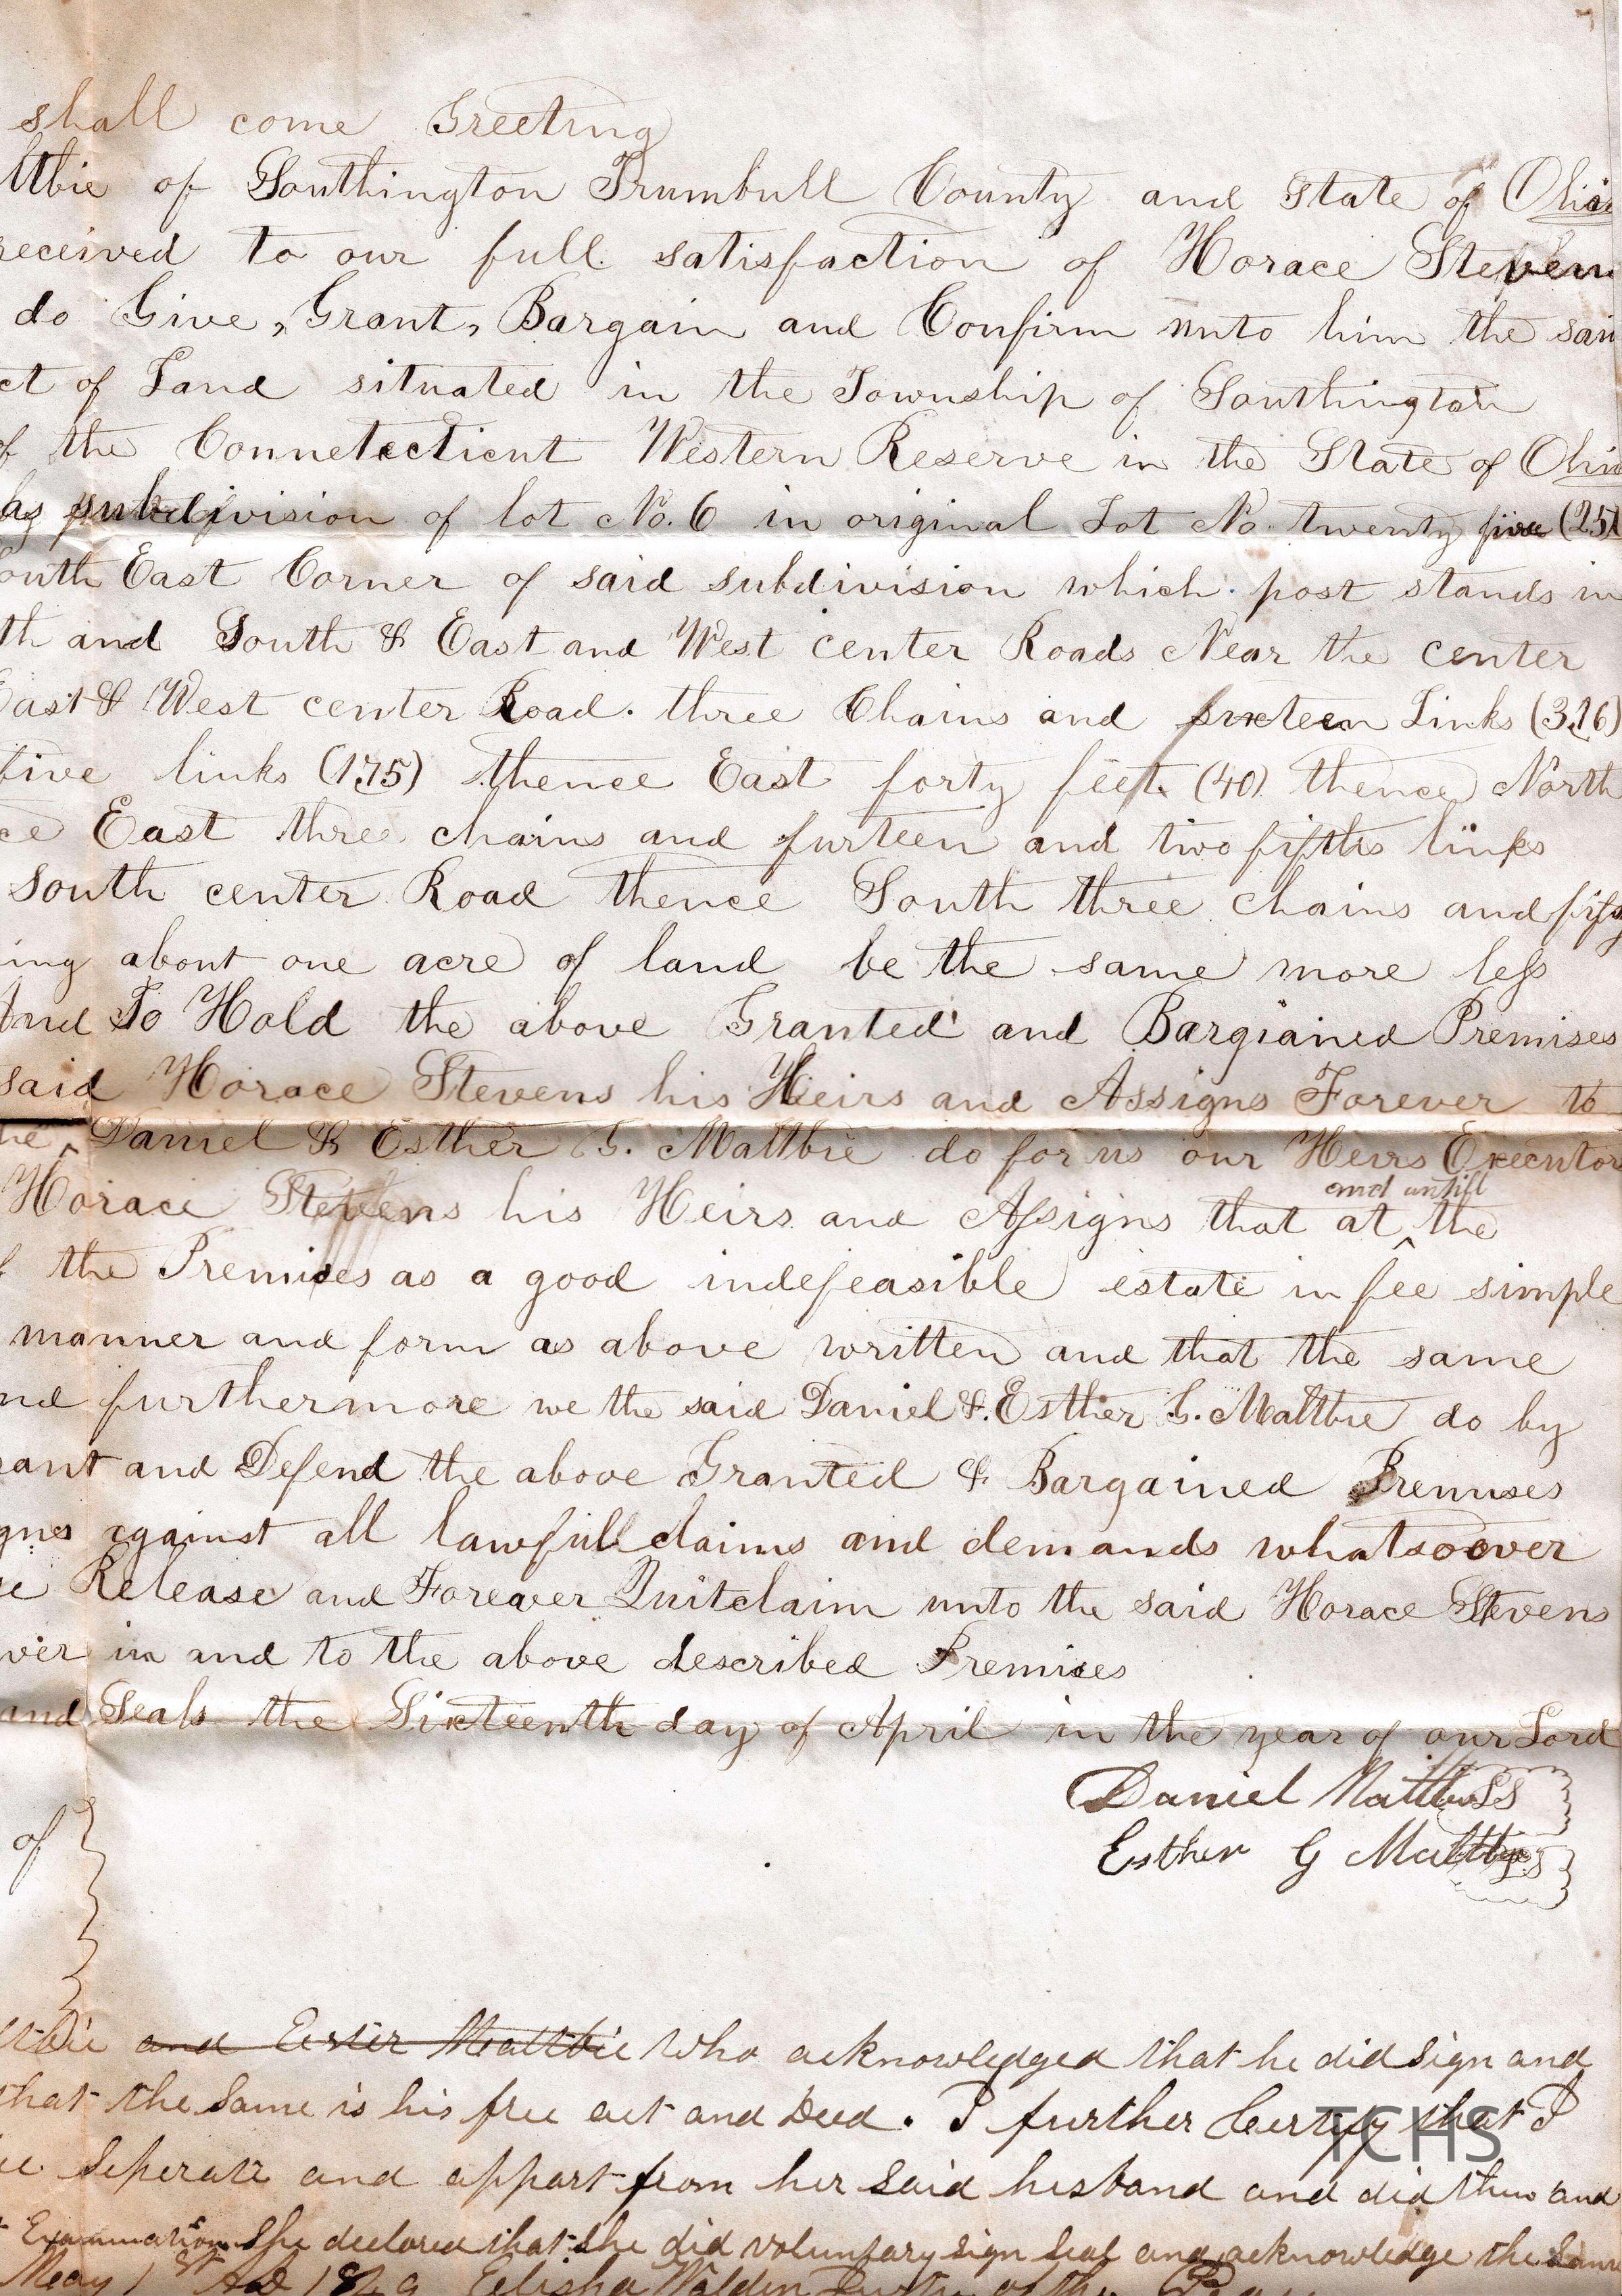 shall come Greeting
ltbie of Southington Trumbull County and State of Ohio
received to our full satisfaction of Horace Stevens
do Give, Grant, Bargain and Confirm unto him the said
ct of Land situated in the Township of Southington
of the Connetecticut Western Reserve in the State of Ohio
subdivision of lot No. 6 in original Lot No. twenty five (25)
outh East Corner of said subdivision which post stands in
th and South & East and West center Roads Near the center
East & West center Road. three Chains and sixteen Links (3.16)
five links (1.75) thence East forty feet (40) thence North
ce East three chains and furteen and two fifths links
South center Road thence South three chains and fifty
ing about one acre of land be the same more less
And To Hold the above Granted and Bargianed Premises
said Horace Stevens his Heirs and Assigns Forever to
he Daniel & Esther G. Maltbie do for us our Heirs Executor
and untill
Horace Stevens his Heirs and Assigns that at ^ the
the Premises as a good indefeasible estate in fee simple
manner and form as above written and that the same
nd furthermore we the said Daniel & Esther G. Maltbie do by
rant and Defend the above Granted & Bargained Premises
gnes against all lawfull claims and demands whatsoover
Release and Forever Quitclaim unto the said Horace Stevens
ver in and to the above described Premises
and Seals the Sixteenth day of April in the year of our Lord
Daniel Maltbie LS
of
Esther G Maltbie LS
ltbie and Ester Maltbie who acknowledged that he did sign and
that the Same is his free act and Deed. I further Certify that I
TCHS
Seperate and appart from her said husband and did then and
Examination She declared that she did voluntary sign seal and acknowledge the Same
May 1st AD Elisha Walden